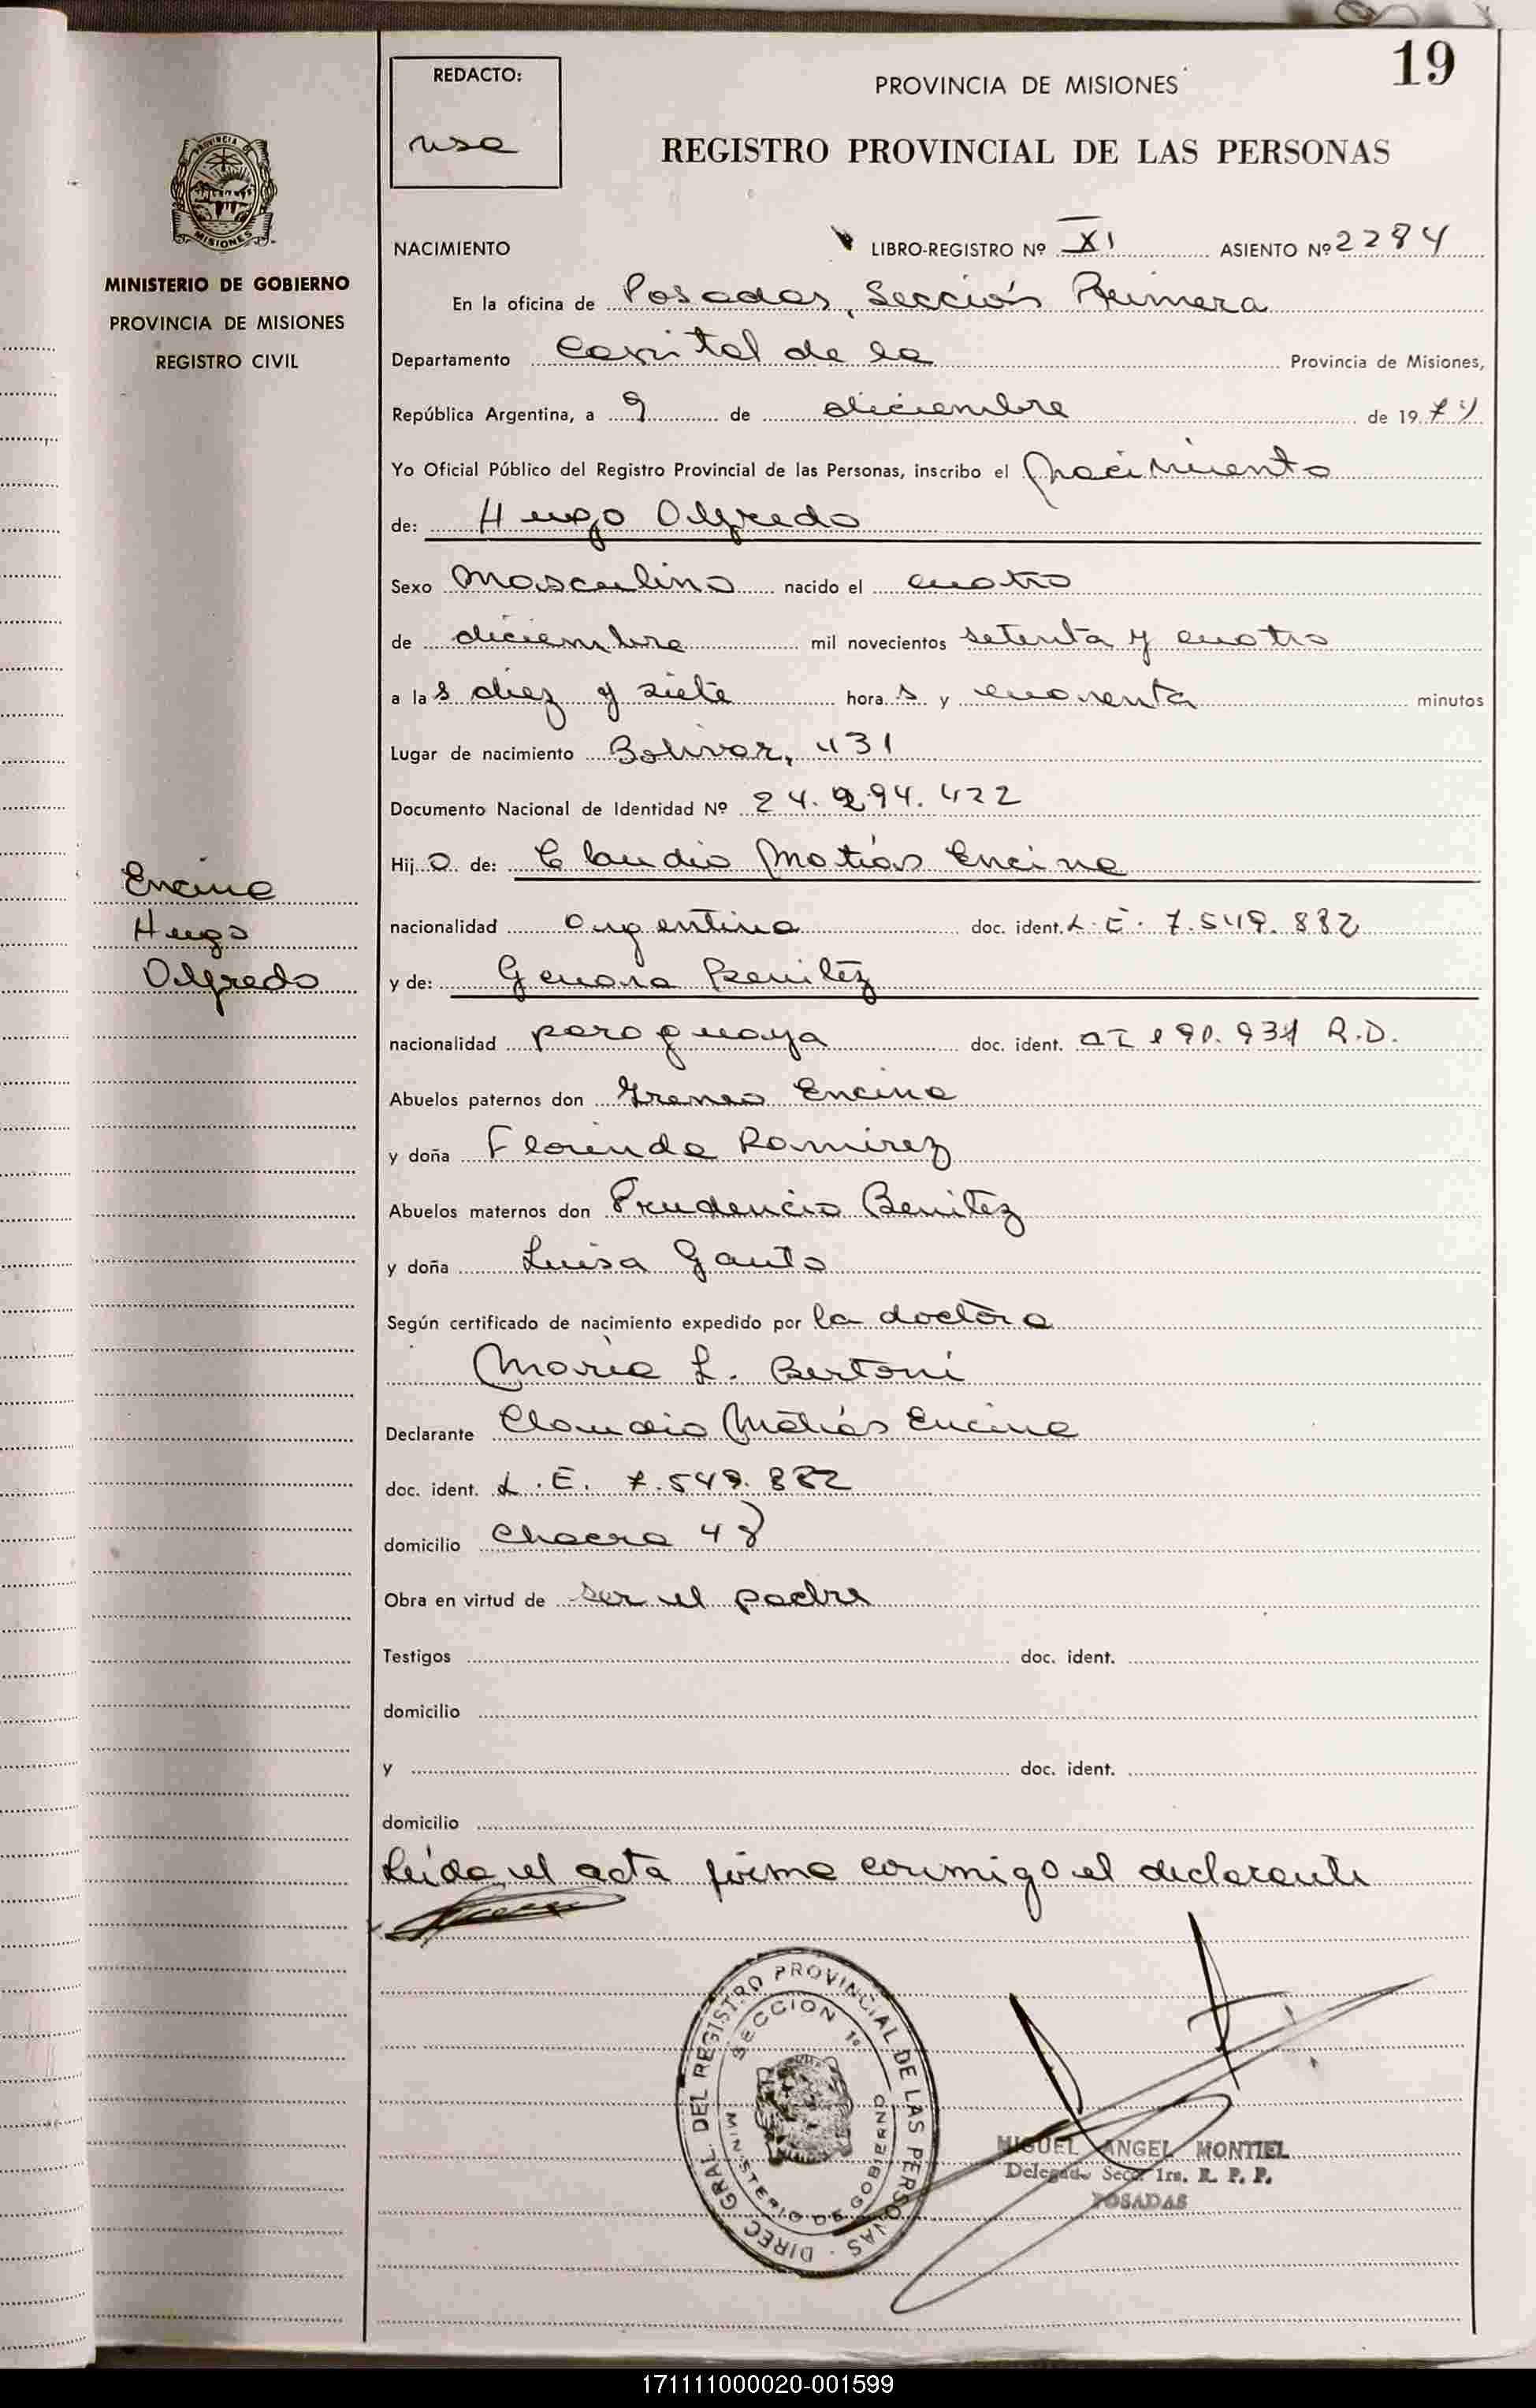 19
REDACTO:
PROVINCIA DE MISIONES
REGISTRO PROVINCIAL DE LAS PERSONAS
PROVINCIA DE
MISIONES
MINISTERIO DE GOBIERNO
PROVINCIA DE MISIONES
REGISTRO CIVIL
NACIMIENTO LIBRO-REGISTRO Nº XI ASIENTO Nº 2284
En la oficina de Posadas, Sección Primera
Departamento Capital de la Provincia de Misiones,
República Argentina, a 9 de diciembre de 1974
Yo Oficial Público del Registro Provincial de las Personas, inscribo el Nacimiento
de: Hugo Alfredo
Sexo Masculino nacido el cuatro
de diciembre mil novecientos setenta y cuatro
a las diez y siete horas y cuarenta minutos
Lugar de nacimiento Bolívar, 431
Documento Nacional de Identidad Nº 24.294.422
Hijo de: Claudio Matías Encina
Encina
Hugo
Alfredo
nacionalidad argentina doc. ident. L.E. 7.549.882
y de: Genara Benitez
nacionalidad paraguaya doc. ident. R.D.
Abuelos paternos don Ireneo Encina
y doña Florinda Ramirez
Abuelos maternos don Prudencio Benitez
y doña Luisa Gauto
Según certificado de nacimiento expedido por la doctora
María L. Bertoni
Declarante Claudio Matías Encina
doc. ident. L.E. 7.549.882
domicilio Chacra 48
Obra en virtud de ser el padre
Testigos doc. ident.
domicilio
y doc. ident.
domicilio
Leída el acta firma conmigo el declarante
DIREC. GRAL DEL REGISTRO PROVINCIAL DE LAS PERSONAS
SECCION 1ª
MINISTERIO DE GOBIERNO
MIGUEL ANGEL MONTIEL
Delegado Secc. 1ra. R. P. P.
POSADAS
171111000020-001599